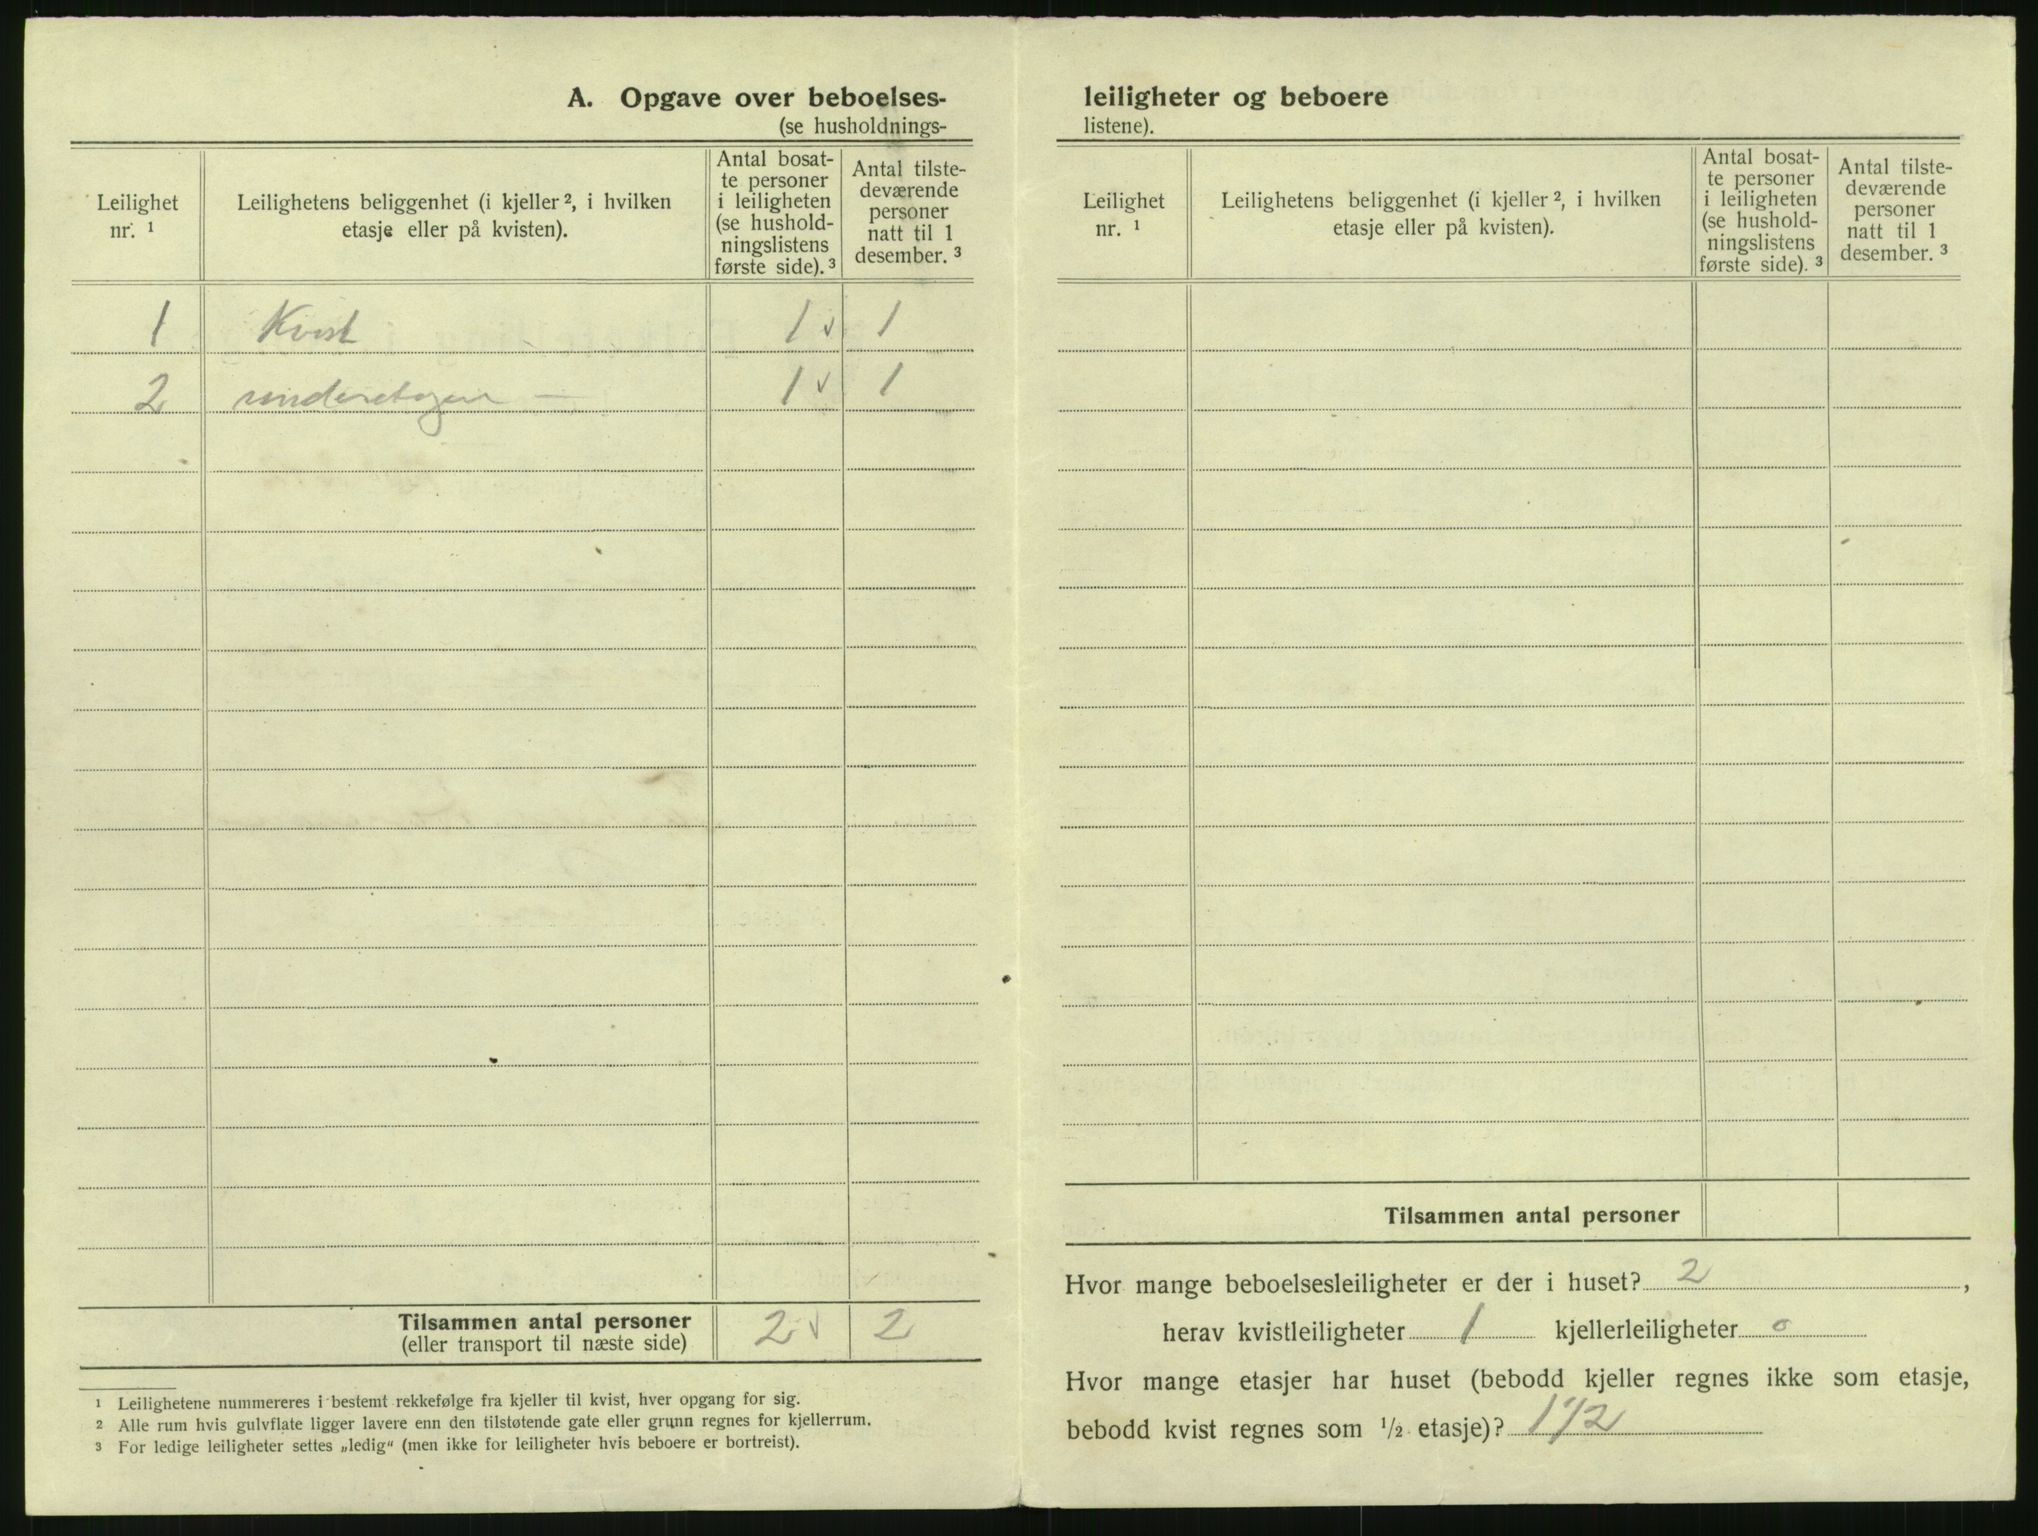 A. Opgave over beboelses-
(se husholdnings-
Leilighet nr. ¹
Leilighetens beliggenhet (i kjeller ², i hvilken
etasje eller på kvisten).
Antal bosat-
te personer
i leiligheten
(se hushold-
ningslistens
første side). ³
Antal tilste-
deværende
personer
natt til 1
desember. ³
1 Kvist 1 √ 1
2 underetagen — 1 √ 1
Tilsammen antal personer 2 √ 2
(eller transport til næste side)
¹ Leilighetene nummereres i bestemt rekkefølge fra kjeller til kvist, hver opgang for sig.
² Alle rum hvis gulvflate ligger lavere enn den tilstøtende gate eller grunn regnes for kjellerrum.
³ For ledige leiligheter settes „ledig“ (men ikke for leiligheter hvis beboere er bortreist).
leiligheter og beboere
listene).
Leilighet nr. ¹
Leilighetens beliggenhet (i kjeller ², i hvilken
etasje eller på kvisten).
Antal bosat-
te personer
i leiligheten
(se hushold-
ningslistens
første side). ³
Antal tilste-
deværende
personer
natt til 1
desember. ³
Tilsammen antal personer
Hvor mange beboelsesleiligheter er der i huset? 2,
herav kvistleiligheter 1 kjellerleiligheter 0
Hvor mange etasjer har huset (bebodd kjeller regnes ikke som etasje,
bebodd kvist regnes som ½ etasje)? 1 1/2